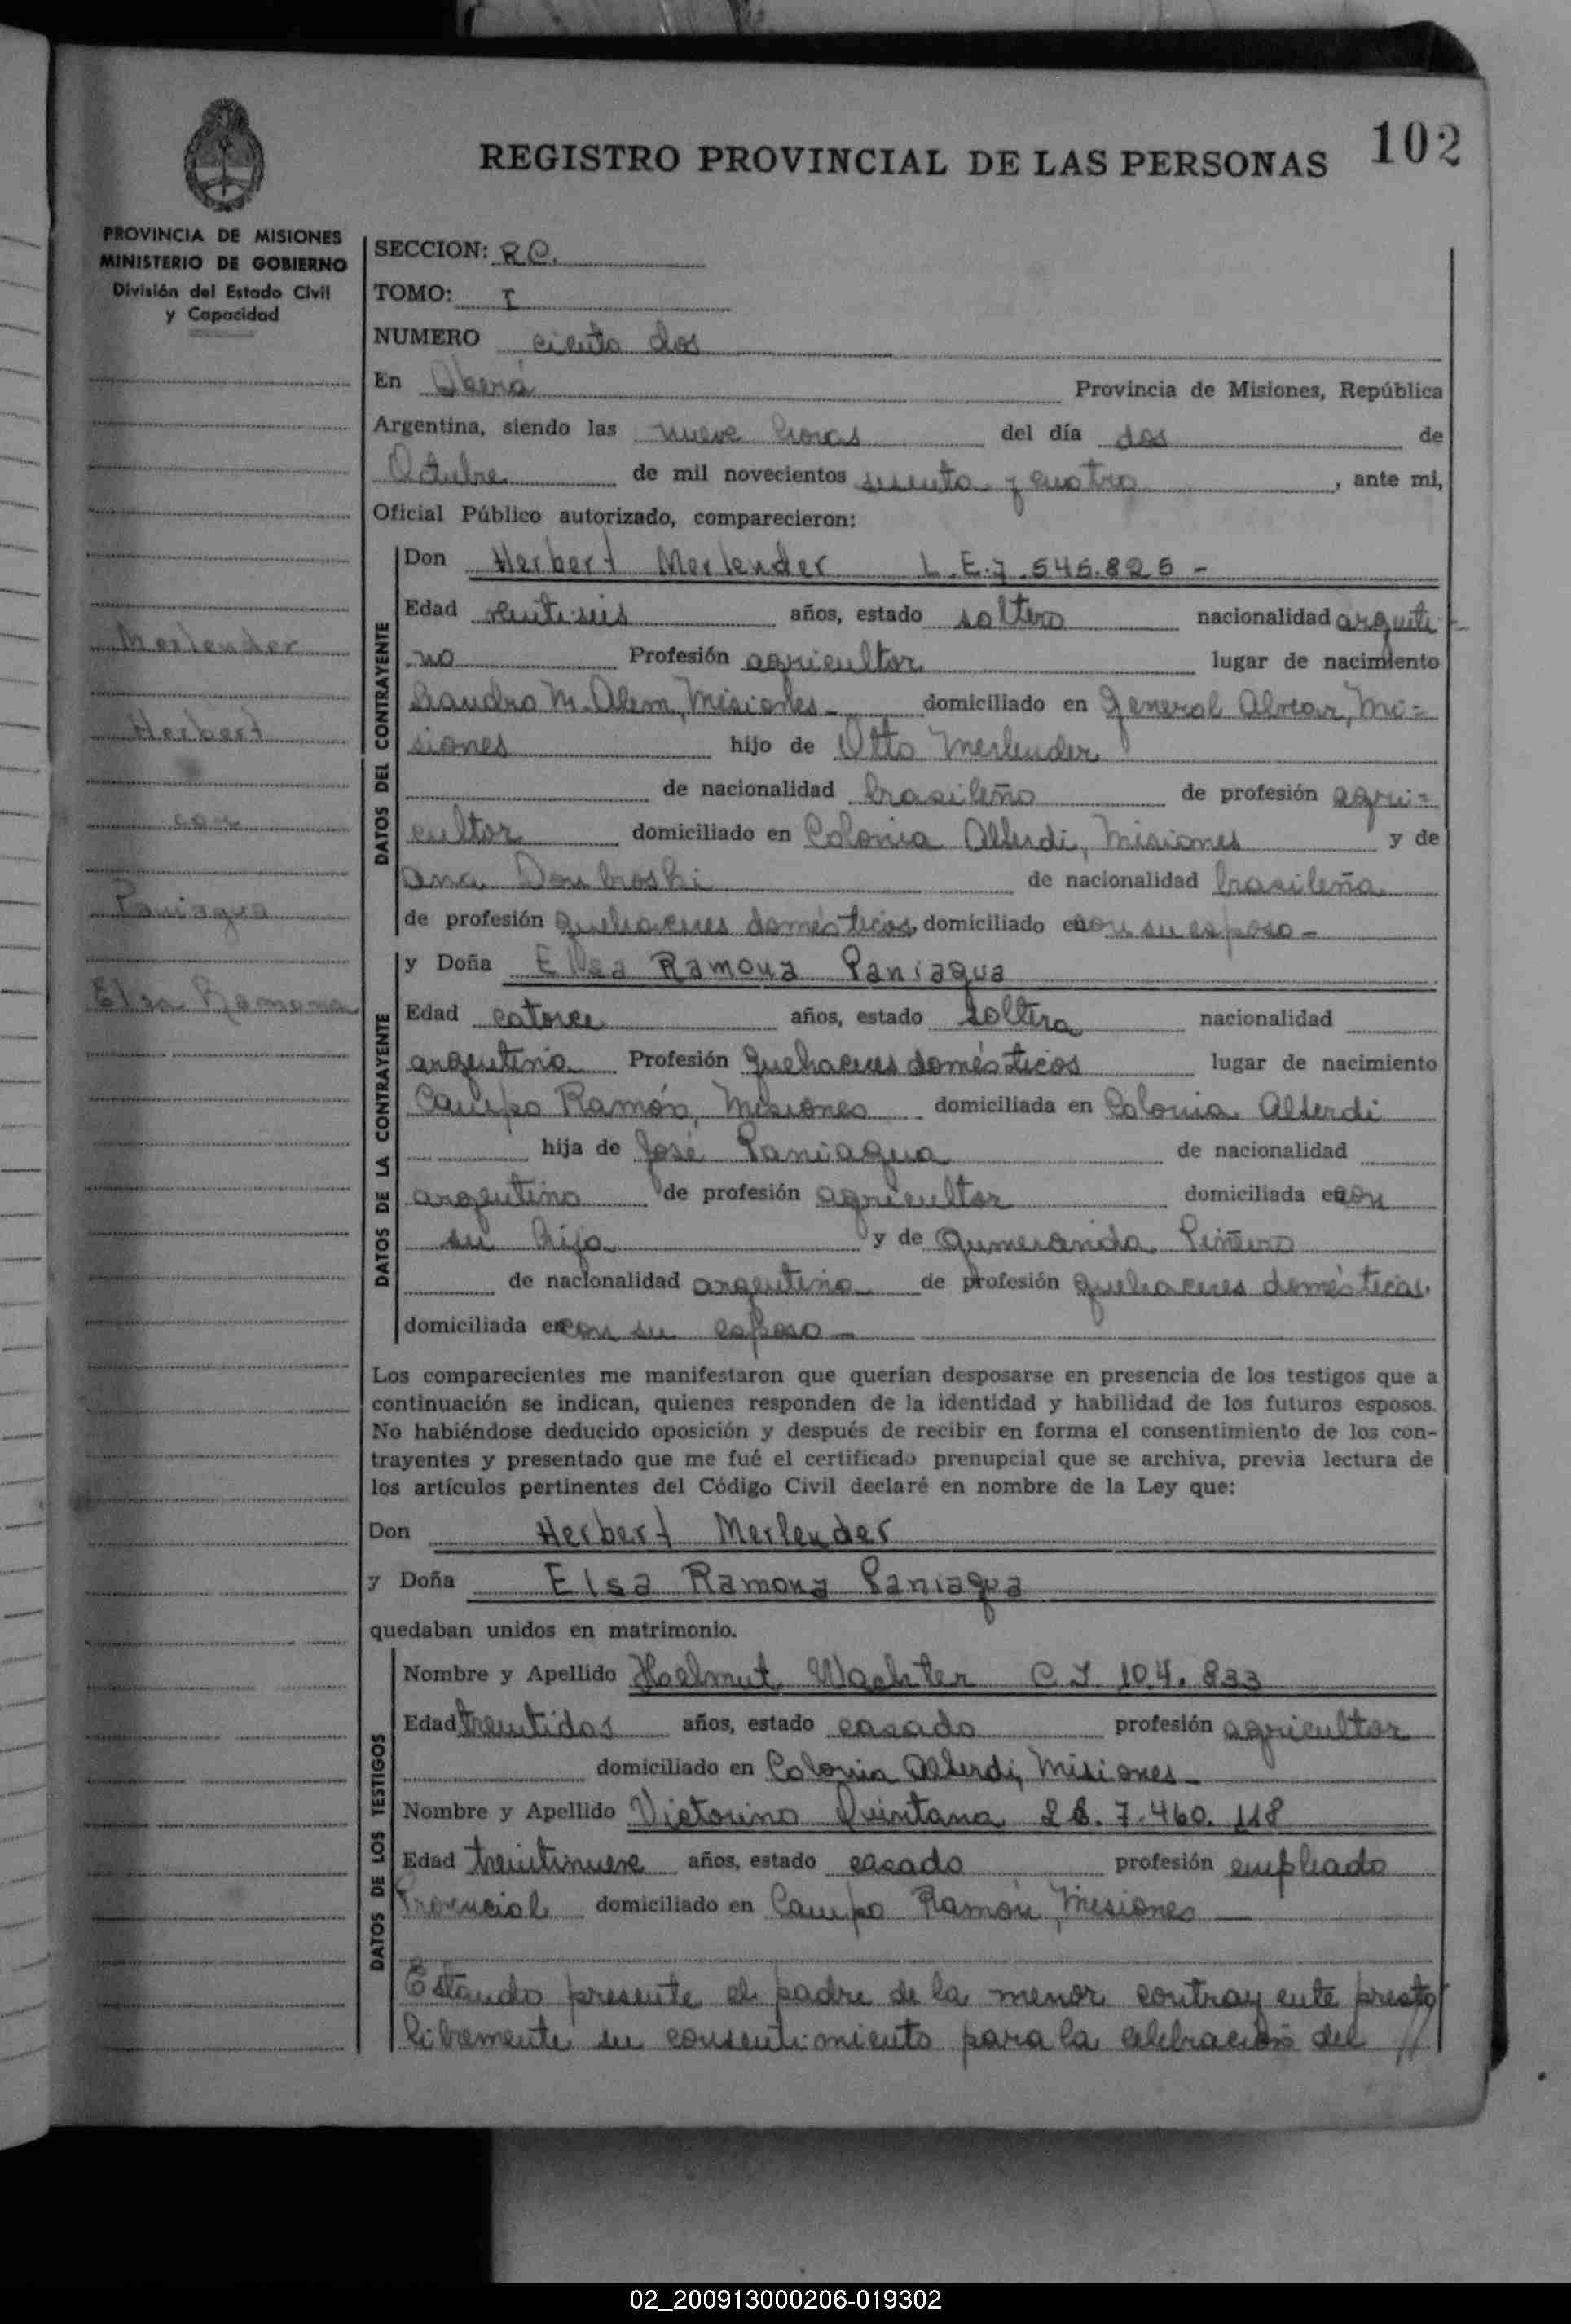 102
REGISTRO PROVINCIAL DE LAS PERSONAS
PROVINCIA DE MISIONES
MINISTERIO DE GOBIERNO
División del Estado Civil
y Capacidad
Merlender
Herbert
con
Paniagua
Elsa Ramona
SECCION: R C.
TOMO: I
NUMERO ciento dos
En Oberá Provincia de Misiones, República
Argentina, siendo las nueve horas del día dos de
Octubre de mil novecientos sesenta y cuatro, ante mi,
Oficial Público autorizado, comparecieron:
DATOS DEL CONTRAYENTE
Don Herbert Merlender L.E. 7.546.825 -
Edad veintiseis años, estado soltero nacionalidad argenti-
no Profesión agricultor lugar de nacimiento
Leandro N. Alem, Misiones - domiciliado en General Alvear, Mi=
siones hijo de Otto Merlender
de nacionalidad brasileño de profesión agri=
cultor domiciliado en Colonia Alberdi, Misiones y de
Ana Dombroski de nacionalidad brasileña
de profesión quehaceres domésticos, domiciliado en con su esposo -
DATOS DE LA CONTRAYENTE
y Doña Elsa Ramona Paniagua
Edad catorce años, estado soltera nacionalidad
argentina Profesión quehaceres domésticos lugar de nacimiento
Campo Ramón, Misiones domiciliada en Colonia Alberdi
hija de José Paniagua de nacionalidad
argentino de profesión agricultor domiciliada en con
su hija y de Gumercinda Piñeiro
de nacionalidad argentina de profesión quehaceres domésticos,
domiciliada en con su esposo -
Los comparecientes me manifestaron que querían desposarse en presencia de los testigos que a
continuación se indican, quienes responden de la identidad y habilidad de los futuros esposos.
No habiéndose deducido oposición y después de recibir en forma el consentimiento de los con-
trayentes y presentado que me fué el certificado prenupcial que se archiva, previa lectura de
los artículos pertinentes del Código Civil declaré en nombre de la Ley que:
Don Herbert Merlender
y Doña Elsa Ramona Paniagua
quedaban unidos en matrimonio.
DATOS DE LOS TESTIGOS
Nombre y Apellido Hoelmut Wachter C I. 104. 833
Edad treintidos años, estado casado profesión agricultor
domiciliado en Colonia Alberdi, Misiones -
Nombre y Apellido Victorino Quintana L E. 7.460. 118
Edad treintinueve años, estado casado profesión empleado
Provincial domiciliado en Campo Ramón, Misiones -
Estando presente el padre de la menor contrayente prestó
libremente su consentimiento para la celebración del //
02_200913000206-019302